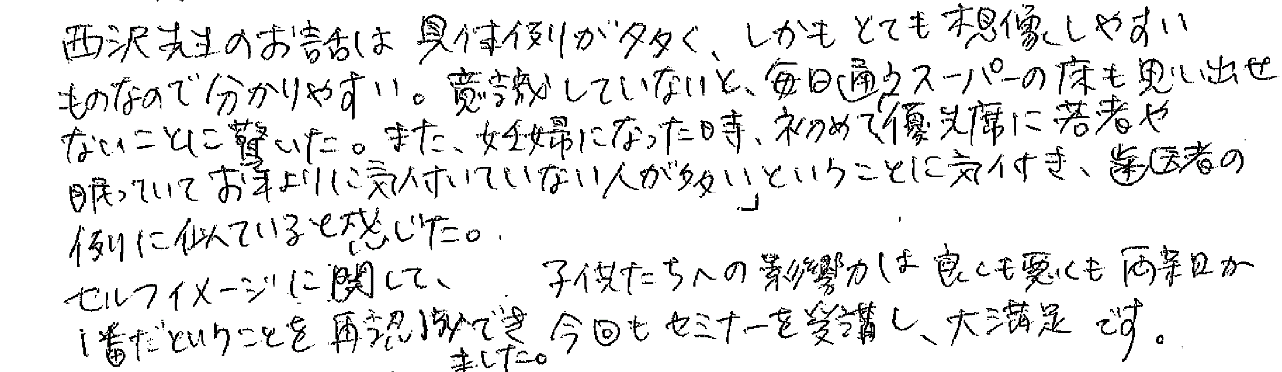 西沢先生のお話は具体例が多く、しかもとても想像しやすい
ものなので分かりやすい。意識していないと、毎日通うスーパーの床も思い出せ
ないことに驚いた。また、妊婦になった時、初めて優先席に若者や
眠っていてお年よりに気付いていない人が多い」ということに気付き、歯医者の
例に似ていると感じた。
セルフイメージに関して、 子供たちへの影響力は良くも悪くも両親が
1番だということを再認識でき
ました。今回もセミナーを受講し、大満足です。